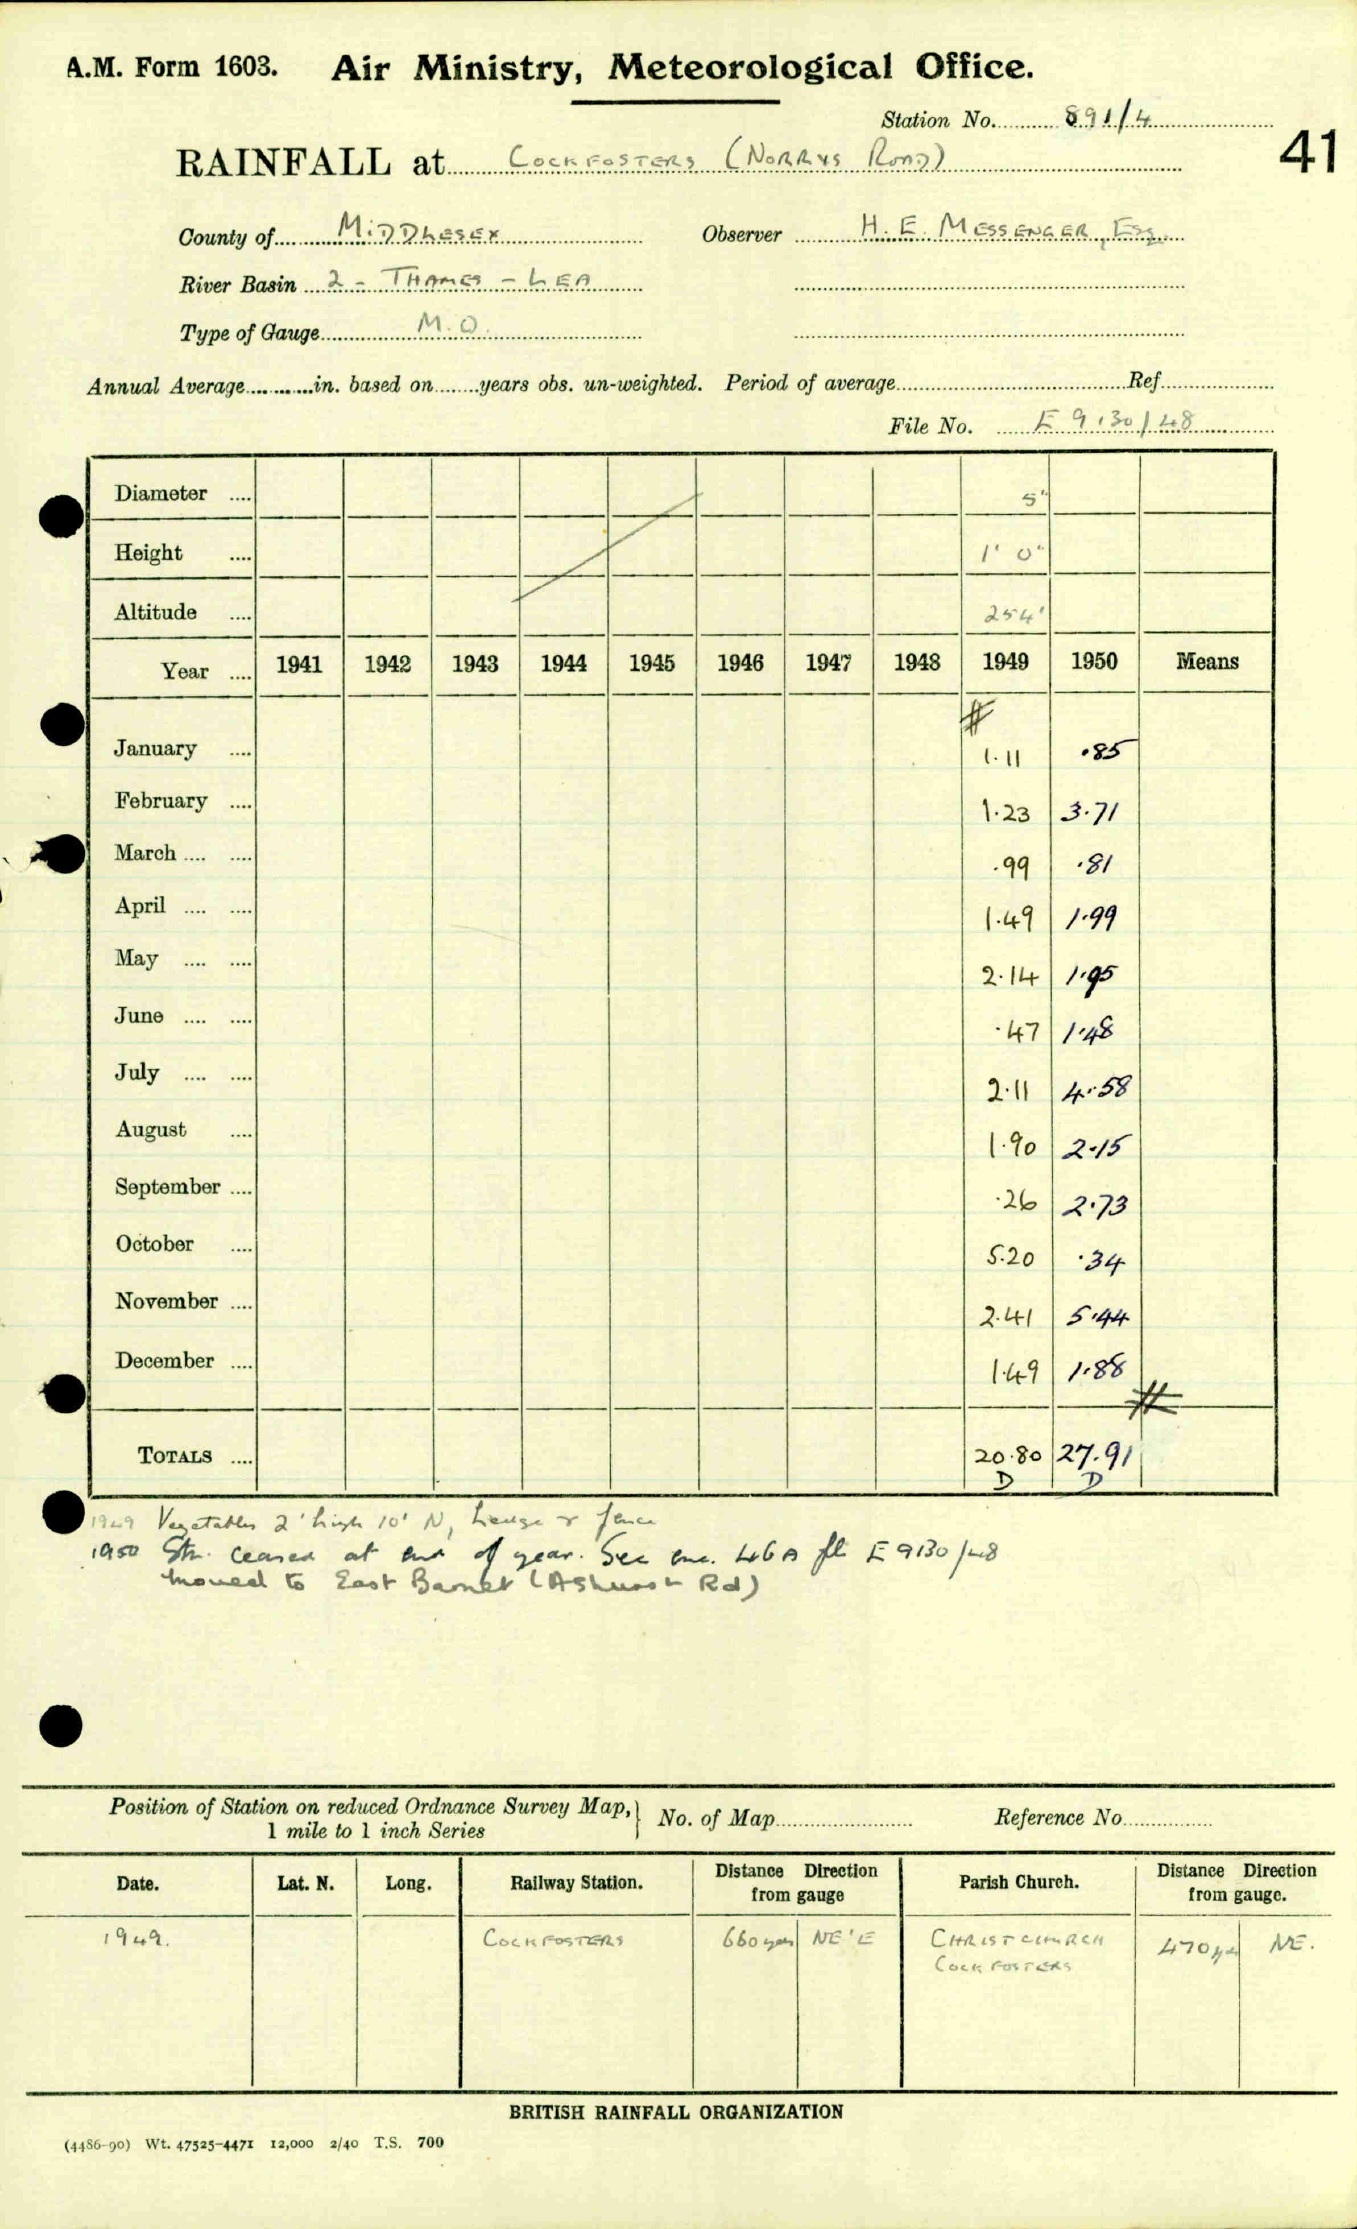 A.M. Form 1603. Air Ministry, Meteorological Office.
Station No. 891/4
41
RAINFALL at COCKFOSTERS (NORRYS ROAD)
County of MIDDLESEX Observer H. E. MESSENGER, Esq.
River Basin 2 - THAMES - LEA
Type of Gauge M.O.
Annual Average in. based on years obs. un-weighted. Period of average Ref.
File No. E 9130/48
Diameter 5"
Height 1' 0"
Altitude 254'
Year 1941 1942 1943 1944 1945 1946 1947 1948 1949 1950 Means
January 1.11 .85
February 1.23 3.71
March .99 .81
April 1.49 1.99
May 2.14 1.95
June .47 1.48
July 2.11 4.58
August 1.90 2.15
September .26 2.73
October 5.20 .34
November 2.41 5.44
December 1.49 1.88
TOTALS 20.80 27.91
D D
1949 Vegetables 2' high 10' N, hedge & fence
1950 Stn. ceased at end of year. See enc. 46A fl E 9130/48
Moved to East Barnet (Ashurst Rd)
Position of Station on reduced Ordnance Survey Map, } No. of Map Reference No.
1 mile to 1 inch Series
Date. Lat. N. Long. Railway Station. Distance Direction from gauge Parish Church. Distance Direction from gauge.
1949. COCKFOSTERS 660 yds NE'E CHRISTCHURCH COCKFOSTERS 470 yds NE.
BRITISH RAINFALL ORGANIZATION
(4486-90) Wt. 47525-4471 12,000 2/40 T.S. 700